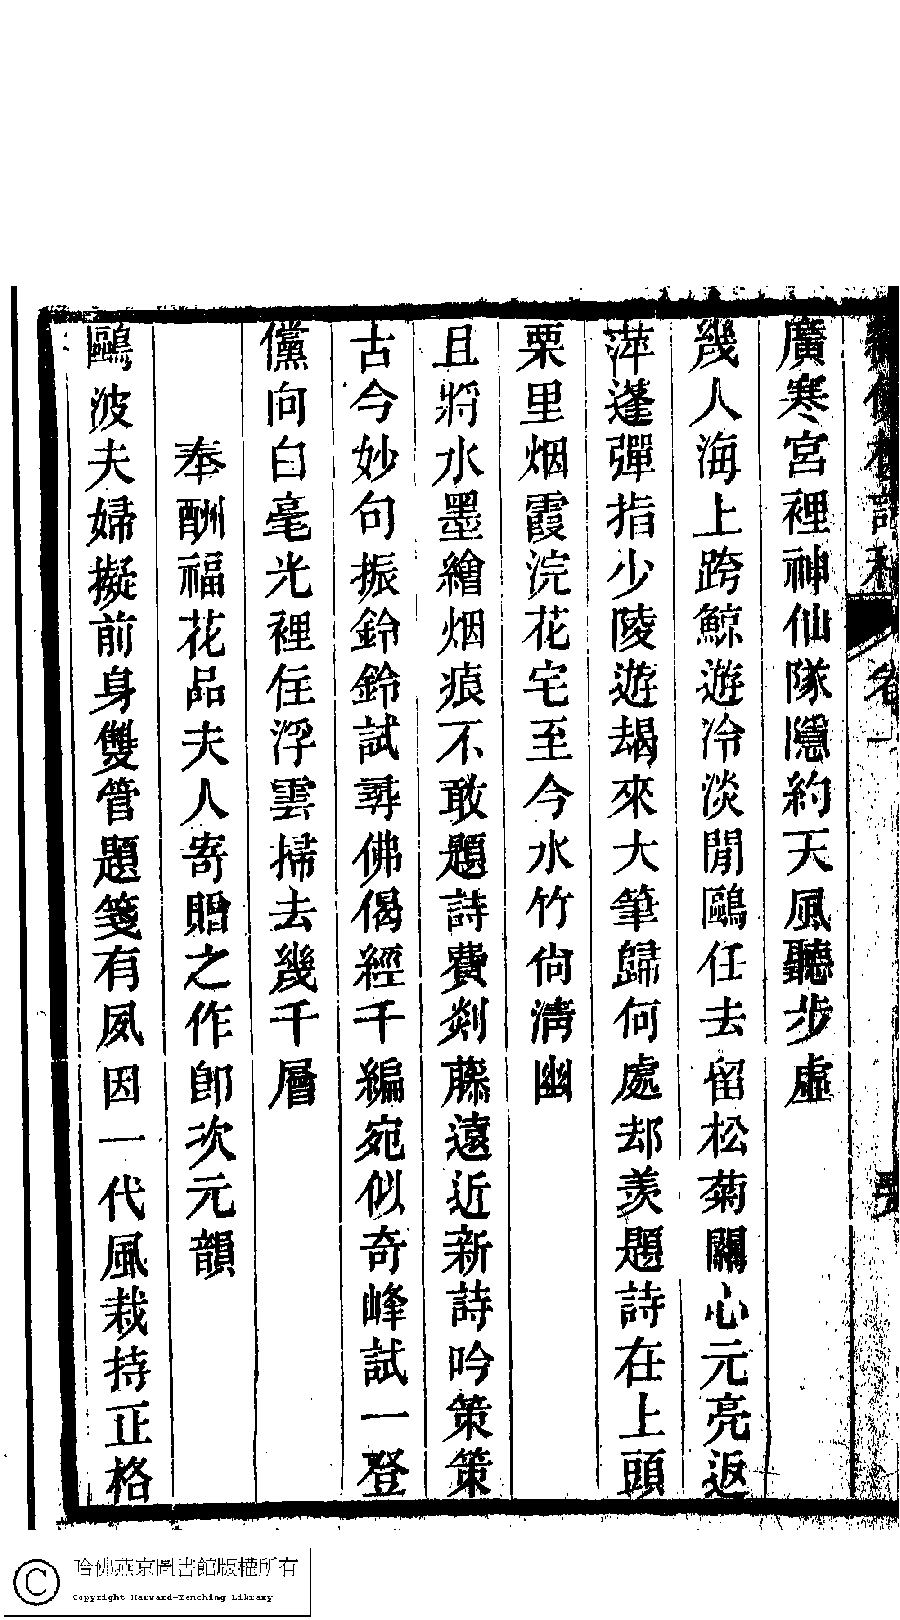 廣寒宮裡神仙隊隱約天風聽步虛
幾人海上跨鯨遊冷淡閒鷗任去留松菊關心元亮返
萍蓬彈指少陵遊朅來大筆歸何處却羨題詩在上頭
栗里烟霞浣花宅至今水竹尙淸幽
且將水墨繪烟痕不敢題詩費剡藤遠近新詩吟策策
古今妙句振鈴鈴試尋佛偈經千編宛似奇峰試一登
儻向白毫光裡住浮雲掃去幾千層
奉酬福花品夫人寄贈之作卽次元韻
鷗波夫婦擬前身雙管題箋有夙因一代風裁持正格
卷一
哈佛燕京圖書館版權所有
Copyright Harvard-Yenching Library